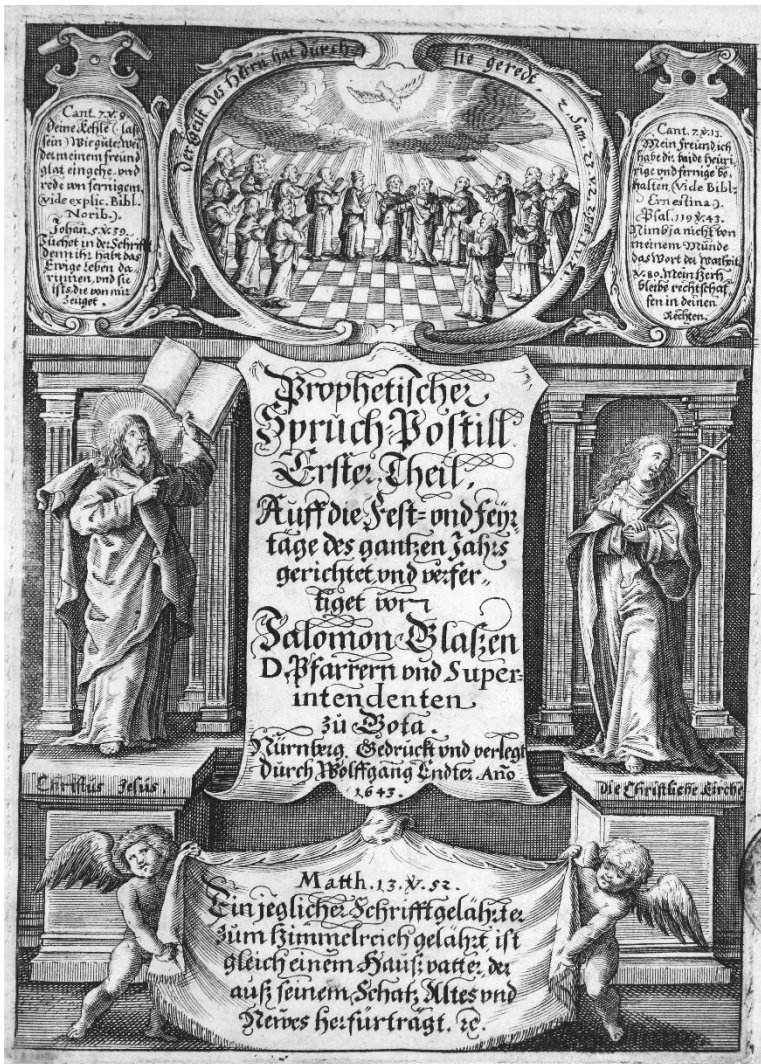 Der Geist des Herrn hat durch sie geredt. 2. Sam. 23. V. 2.
Cant. 7. V. 9.
Deine Kehle (laß
sein) Wie guter wei
der meinem freund
glat eingehe, vnd
rede von fernigem,
(vide explic. Bibl.
Norib.).
Johan. 5. V. 39.
Suchet in der Schrifft
denn ihr habt das
Ewige leben da,
rinnen, vnd sie
ists die von mir
zeuget.
Cant. 7. V. 13.
Mein freund ich
habe dir baide heuri,
rige vnd fernige be,
halten (Vide Bibl:
Ernestina).
Psal. 119 V. 43.
Nim ja nicht von
meinem Munde
das Wort der Warheit
V. 80. Mein Hertz
bleibe rechtschaf
fen in deinen
Rechten.
Prophetischer
Spruch-Postill
Erster Theil,
Auff die Fest- vnd Feyr
täge des gantzen Jahrs
gerichtet vnd verfer,,
tiget von
Salomon Glaßen
D, Pfarrern vnd Super-
intendenten
zu Gota.
Nürnberg, Gedruckt vnd verlegt
durch Wolffgang Endter. Año
1643.
Christus Jesus.
Die Christliche Kirche
Matth. 13. V. 52.
Ein jeglicher Schrifftgelährter
zum Himmelreich gelährt ist
gleich einem Haußvatter, der
auß seinem Schatz Altes vnd
Newes herfürträgt. ꝛc.